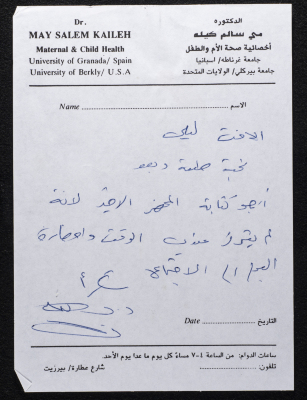 Dr.
MAY SALEM KAILEH
Maternal & Child Health
University of Granada/ Spain
University of Berkly/ U.S.A
الدكتورة
مي سالم كيله
أخصائية صحة الأم والطفل
جامعة غرناطة/ اسبانيا
جامعة بيركلي/ الولايات المتحدة
Name الاسم
الاخت ليلى
تحية طيبة وبعد
أرجو كتابة المحضر الاخير لانه
لم يتوفر عندي الوقت واحضاره
اليوم الى الاجتماع
Date التاريخ
ساعات الدوام: من الساعة ١-٧ مساءً كل يوم ما عدا يوم الأحد
شارع عطارة/ بيرزيت